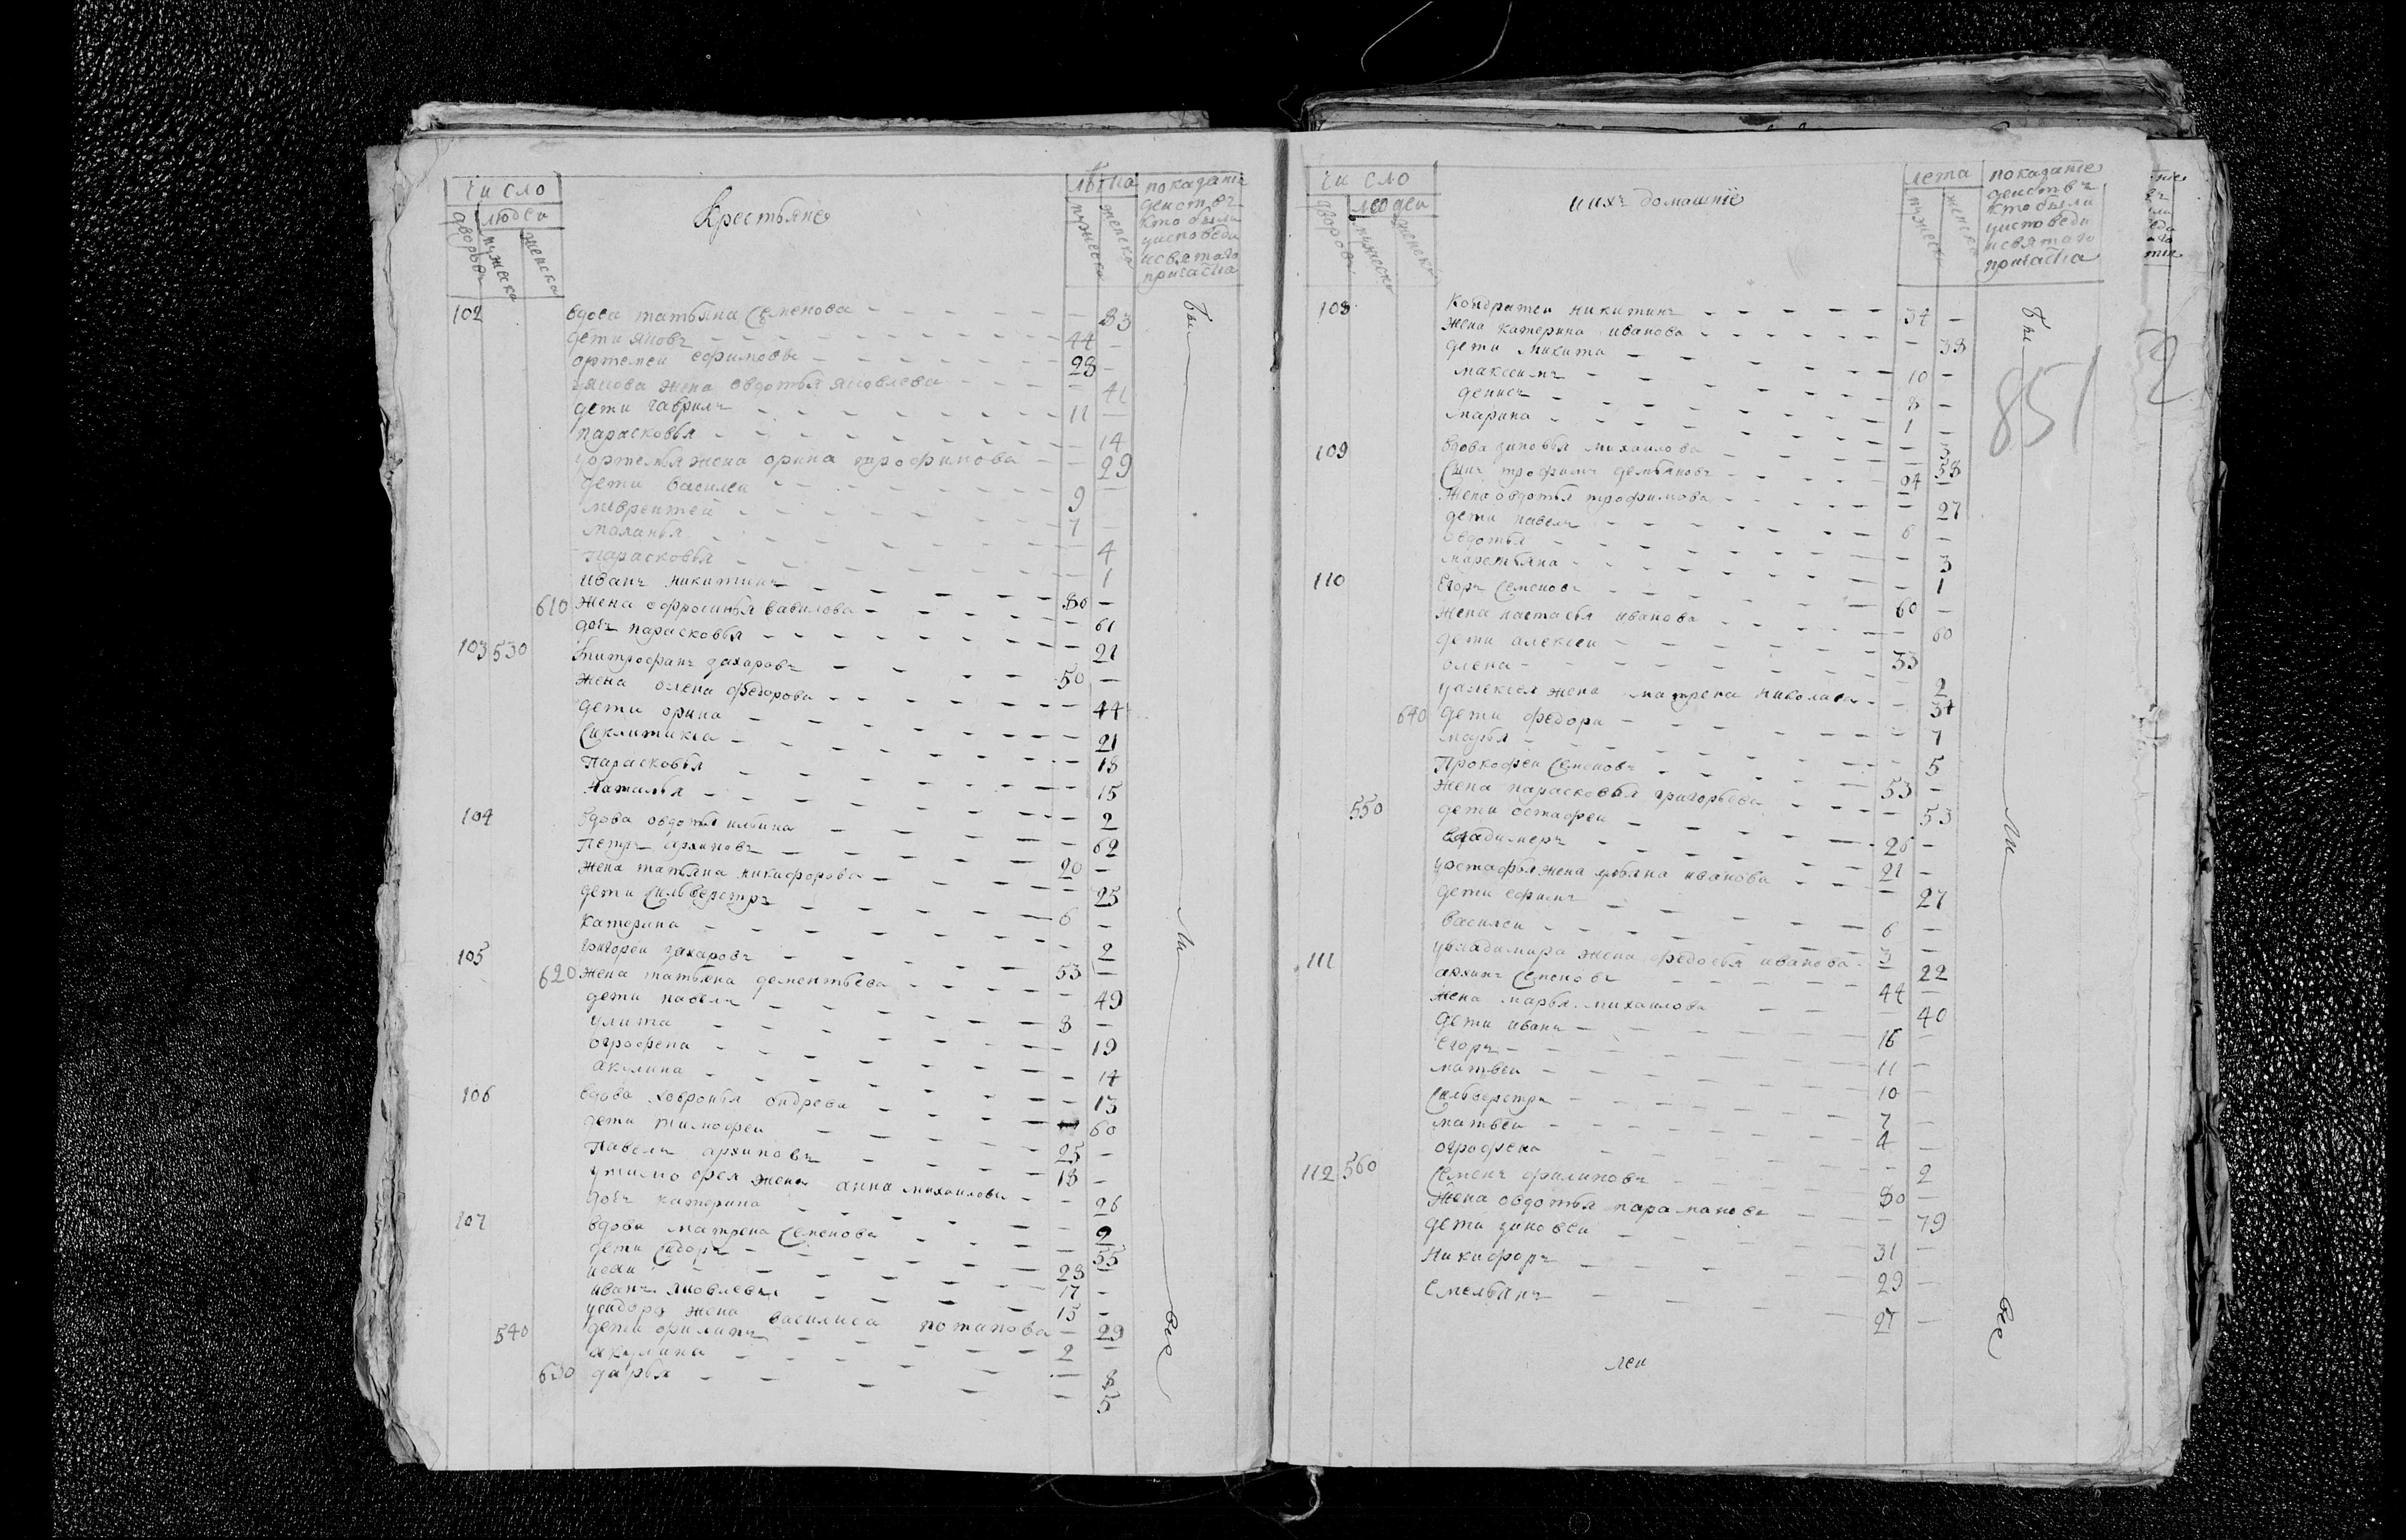 число
людеи
дворовъ
мужеска
женска
Крестьяне
лѣта
мужеска
женска
показание
действъ
кто были
уисповеди
исвятаго
причастиа
102 вдова татьяна Семенова - 83
дети яковъ 44 -
ортемеи ефимовы 28 -
уякова жена овдотья яковлева - 41
дети гаврилъ 11 -
парасковья - 14
уортемья жена орина трофимова - 29
дети василеи 9 -
лаврентеи 7 -
маланья - 4
парасковья - 1
иванъ никитинъ 80 -
610 жена ефросинья вавилова - 61
дочь парасковья - 21
103 530 митрофанъ захаровъ 50 -
жена олена федорова - 44
дети орина - 21
Сиклитикиа - 18
парасковья - 15
наталья - 2
104 вдова овдотья ильина - 62
петръ архиповъ 20 -
жена татьяна никифорова - 25
дети Сильверстръ 6 -
катерина - 2
105 григореи захаровъ 53 -
620 жена татьяна дементьева - 49
дети павелъ 8 -
улита - 19
ографена - 14
акулина - 13
106 вдова ховронья ондрева - 60
дети тимофеи 25 -
павелъ архиповъ 18 -
утимофея жена анна михаилова - 26
дочь катерина - 2
107 вдова матрена Семенова - 55
дети Сидоръ 28 -
17 -
иванъ яковлевы 15 -
усидора жена василиса потапова - 29
540 дети филипъ 2 -
акулина - 8
630 дарья - 5
Были
Ли
все
число
людеи
дворовъ
мужеска
женска
иихъ домашние
лета
мужеска
женска
показание
действъ
кто были
уисповеди
исвятаго
причастиа
851
108 Кондратеи никитинъ 34 -
жена катерина иванова - 38
дети никита 10 -
максимъ 8 -
денисъ 1 -
марина - 3
109 вдова зиновья михаилова - 58
Сынъ трофимъ демьяновъ 24 -
жена овдотья трофимова - 27
дети павелъ 6 -
овдотья - 3
маремьяна - 1
110 Егоръ Семеновъ 60 -
жена настасья иванова - 60
дети алексеи 33
олена - 2
уалексея жена матрена николаева - 34
640 дети федора - 7
марья - 5
прокофеи Семеновъ 53 -
жена парасковья григорьева - 53
550 дети остафеи 26 -
владимеръ 21 -
уостафья жена ульяна иванова - 27
дети ефимъ 6 -
василеи 3 -
увладимира жена федосья иванова - 22
111 архипъ Семеновъ 44 -
жена марья михаилова - 40
дети иванъ 16 -
Егоръ 11 -
матвеи 10 -
Сильверстръ 7 -
матвеи 4 -
ографена - 2
112 560 Семенъ филиповъ 80 -
жена овдотья парамонова - 79
дети зиновеи 31 -
никифоръ 29 -
Емельянъ 27 -
леи
Были
Ли
все